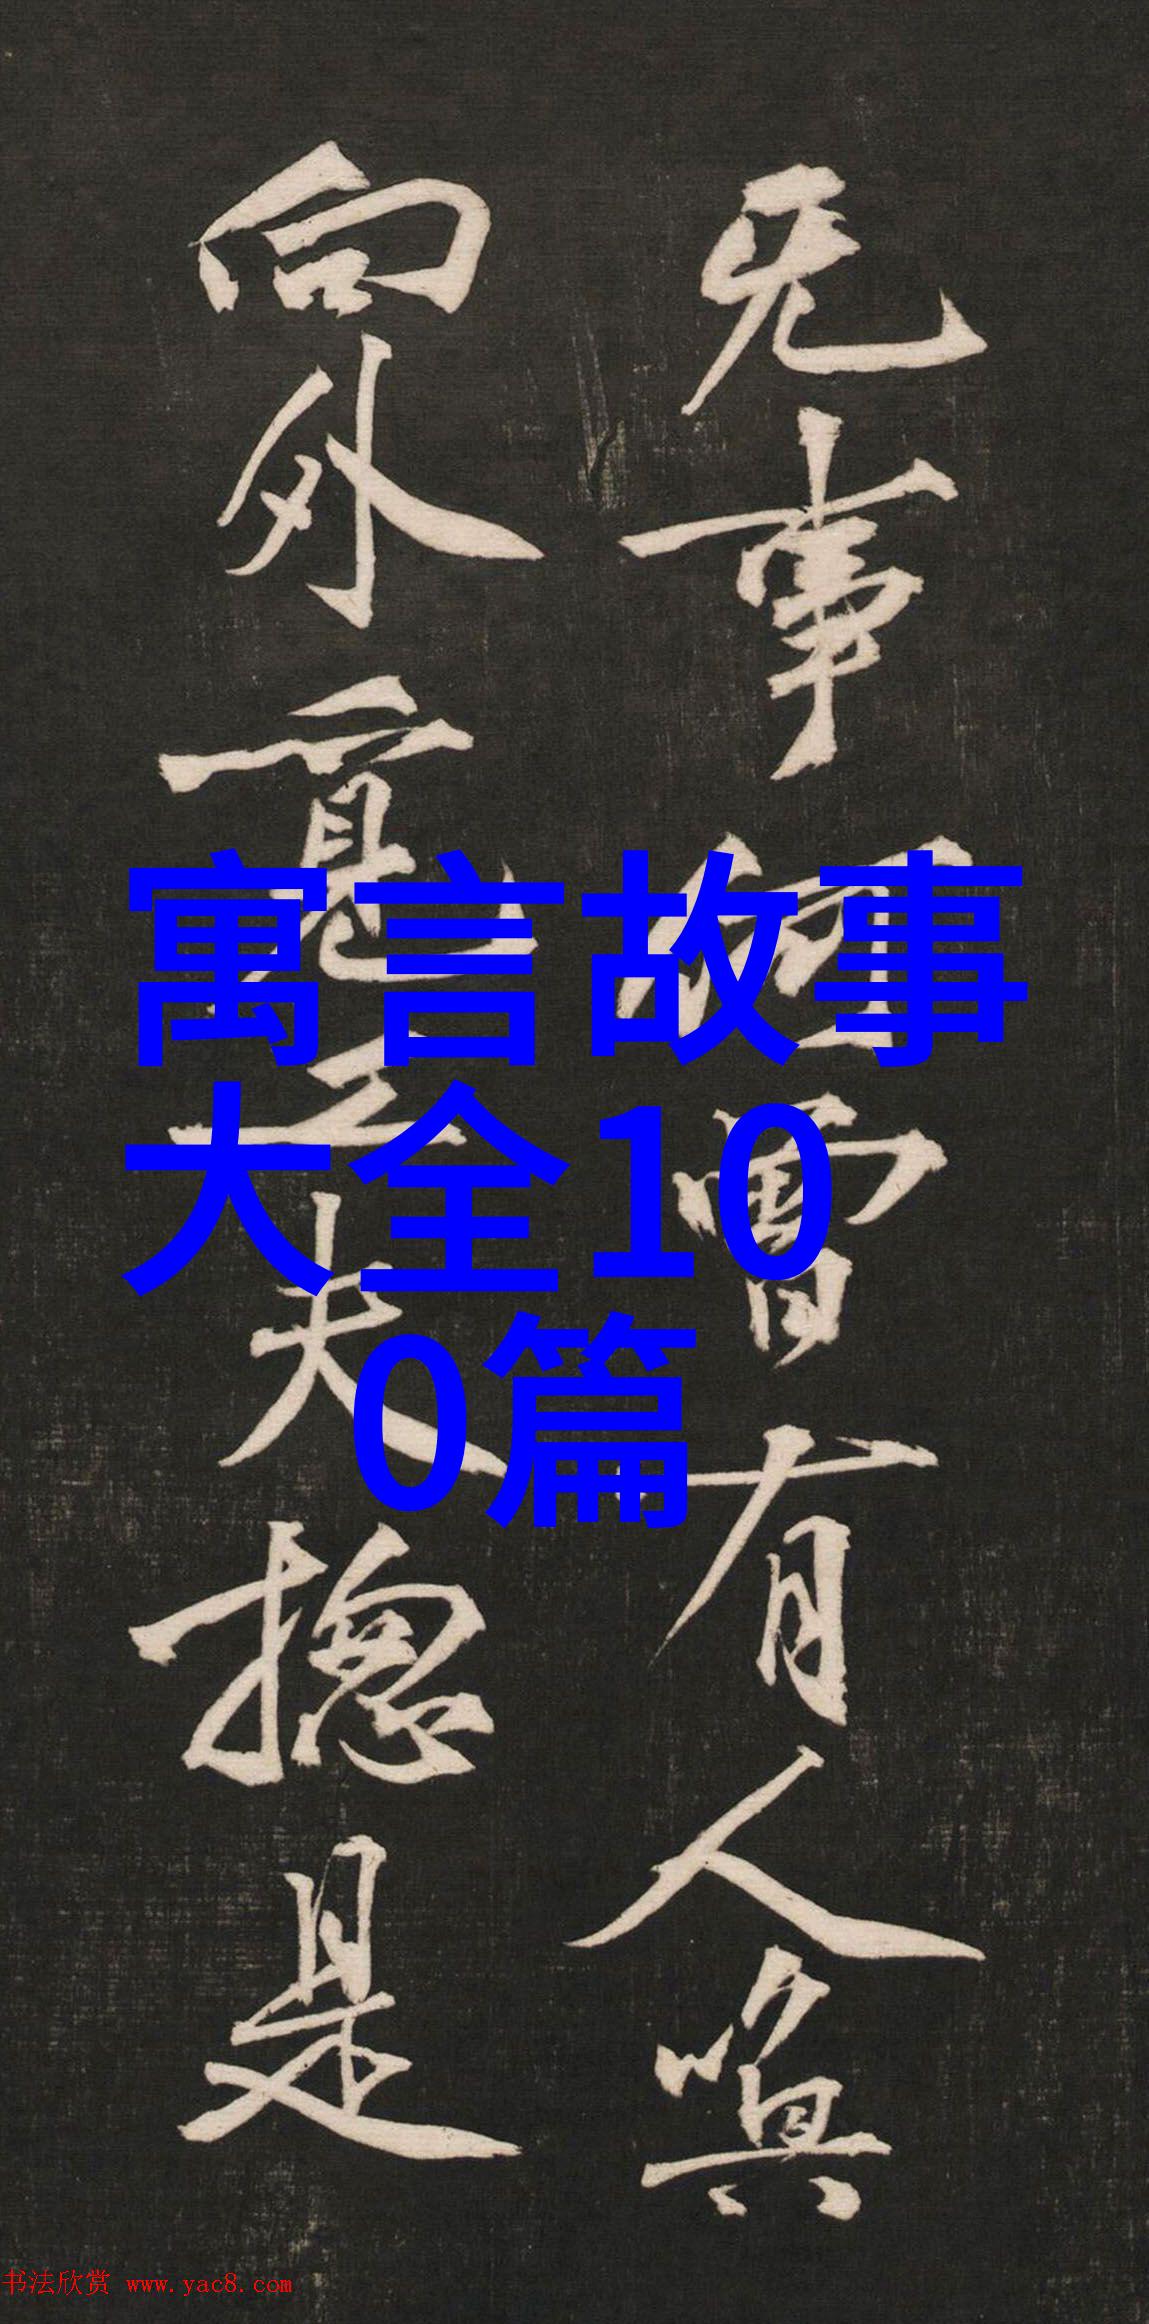 无事何曾有人喚
向外寛工夫揔是
寓言故事
大全10
0篇
书法欣赏 www.yac8.com